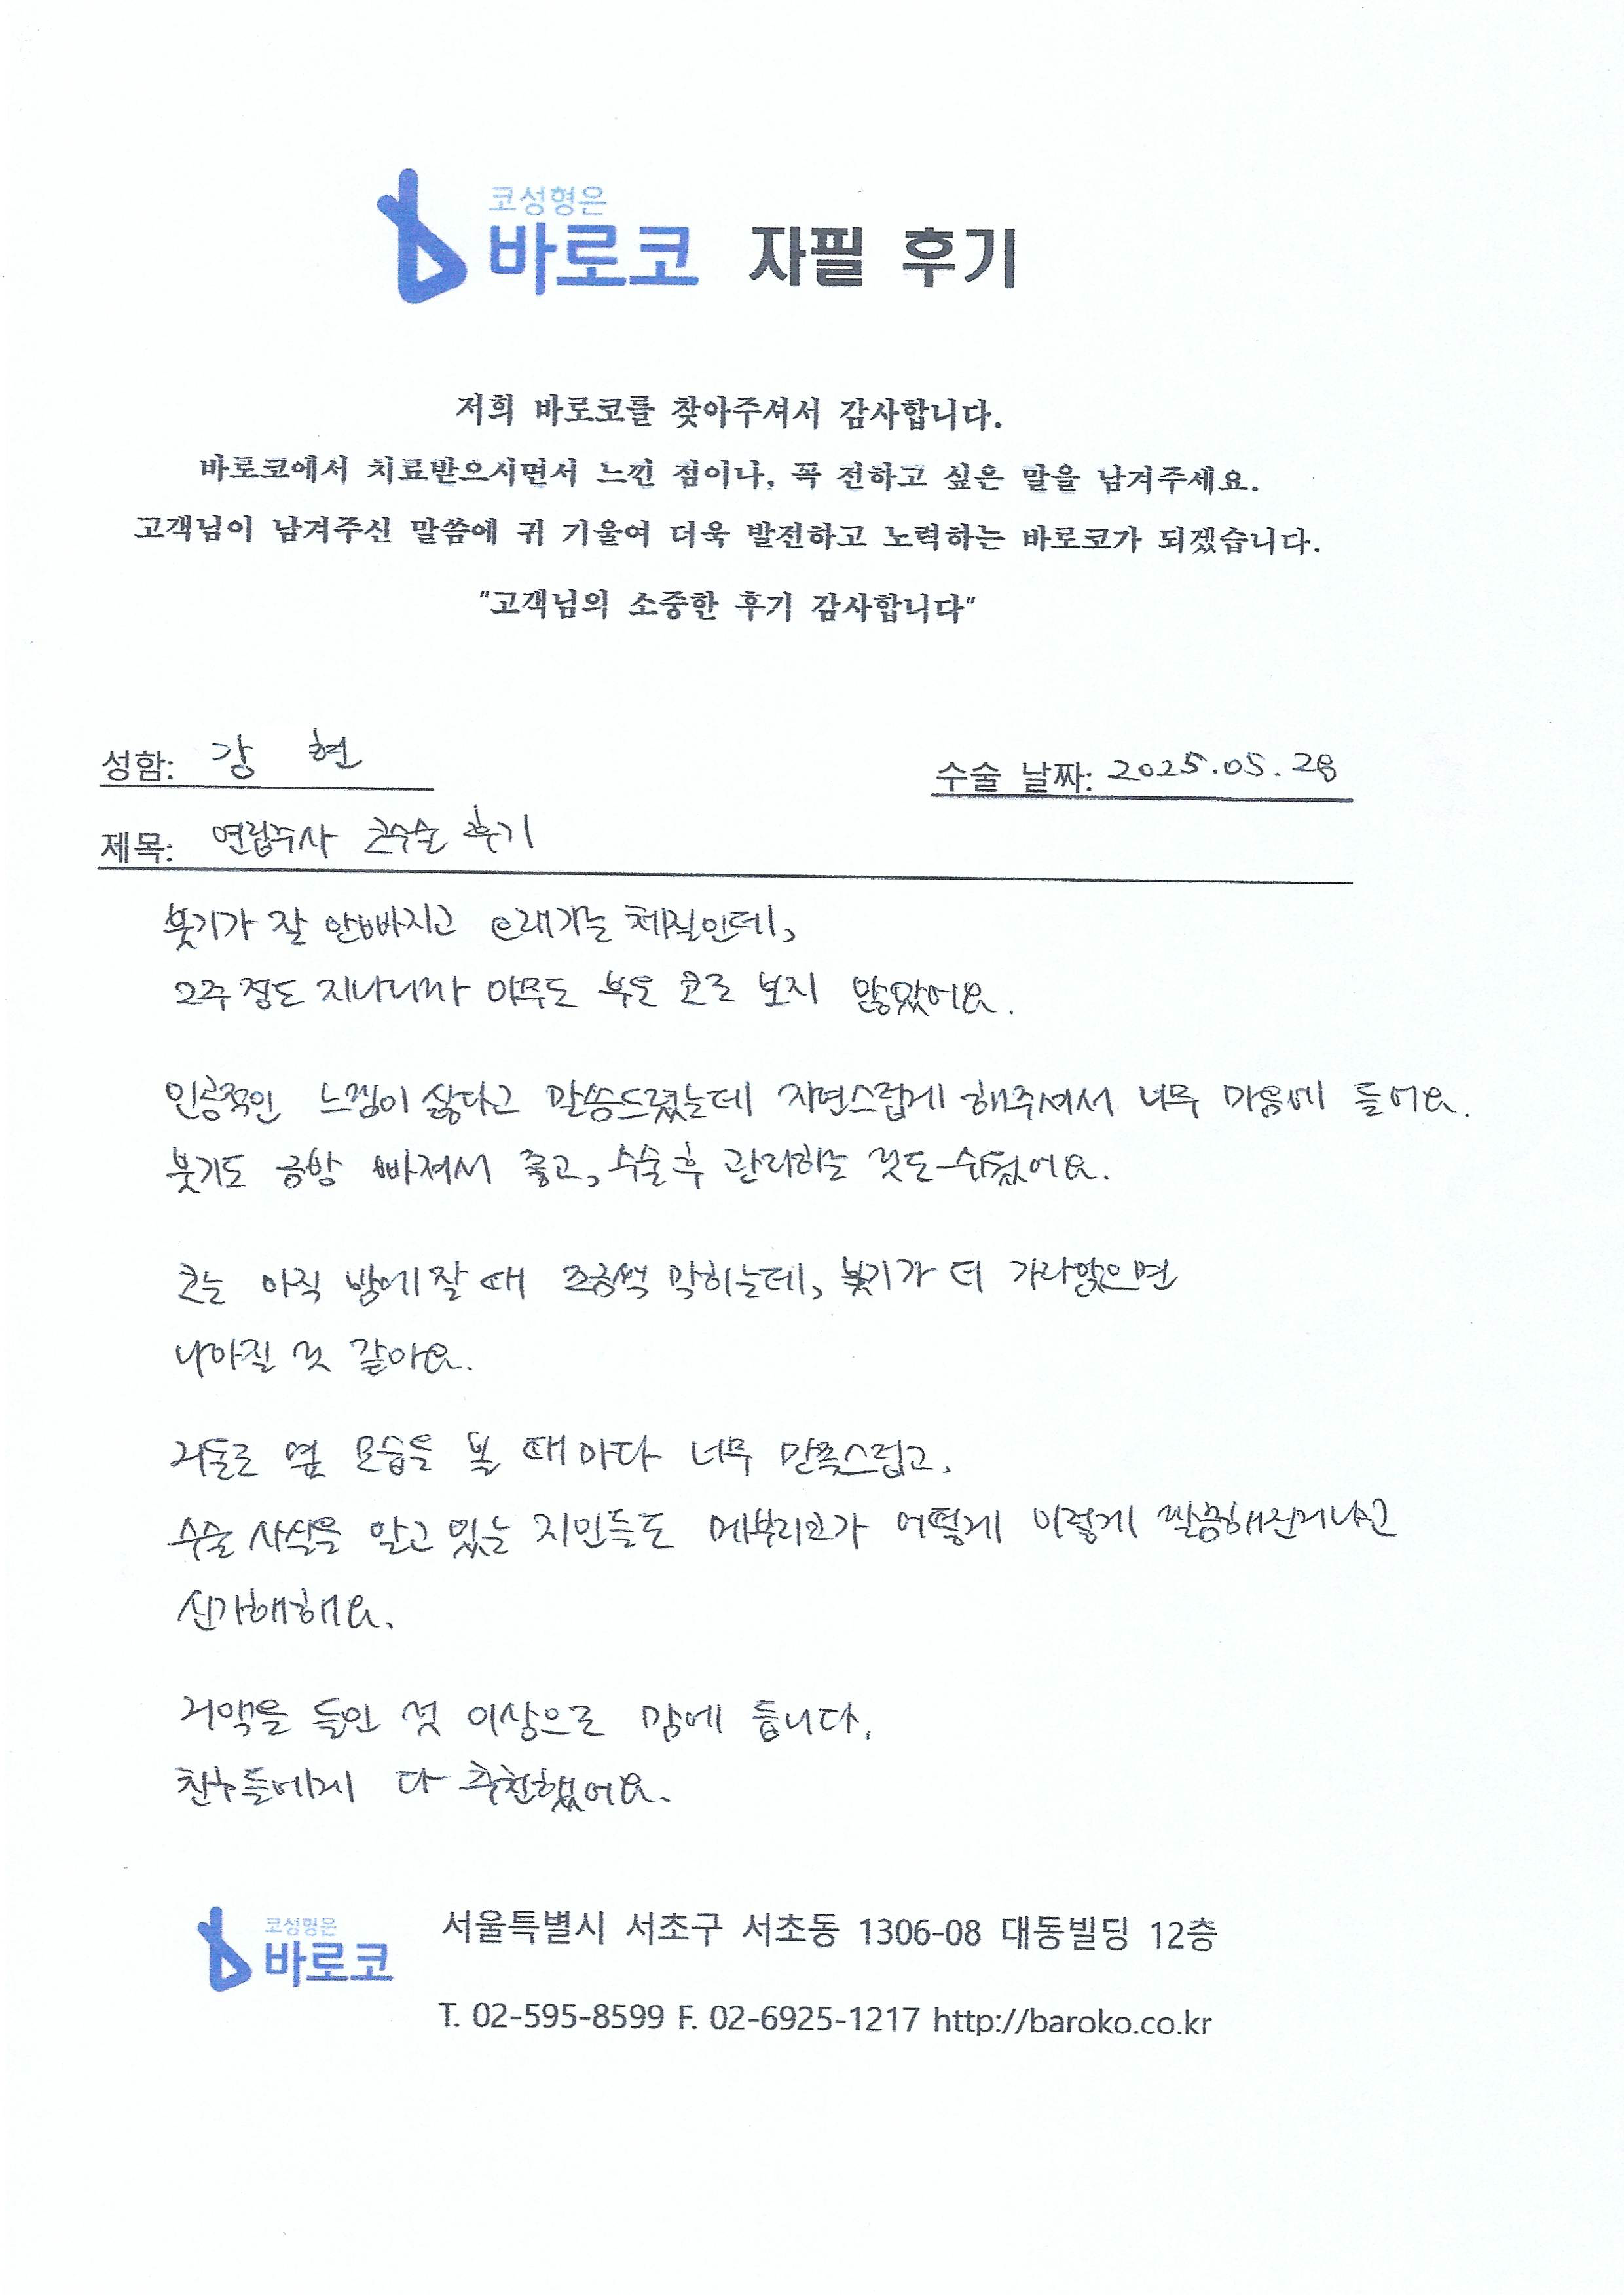 코성형은
바로코 자필 후기
저희 바로코를 찾아주셔서 감사합니다.
바로코에서 치료받으시면서 느낀 점이나, 꼭 전하고 싶은 말을 남겨주세요.
고객님이 남겨주신 말씀에 귀 기울여 더욱 발전하고 노력하는 바로코가 되겠습니다.
"고객님의 소중한 후기 감사합니다"
성함: 강 현
수술 날짜: 2025.05.28
제목: 코수술 후기
붓기가 잘 안빠지고 오래가는 체질인데,
2주 정도 지나니까 아무도 부은 코로 보지 않았어요.
인공적인 느낌이 싫다고 말씀드렸는데 자연스럽게 해주셔서 너무 마음에 들어요.
붓기도 금방 빠져서 좋고, 수술 후 관리하는 것도 쉬웠어요.
코는 아직 밤에 잘 때 조금씩 막히는데, 붓기가 더 가라앉으면
나아질 것 같아요.
거울로 옆 모습을 볼 때 마다 너무 만족스럽고,
수술 사실을 알고 있는 지인들도 메부리코가 어떻게 이렇게 깔끔해진거냐고
신기해해요.
거액을 들인 것 이상으로 맘에 듭니다.
친구들에게 다 추천했어요.
코성형은
바로코
서울특별시 서초구 서초동 1306-08 대동빌딩 12층
T. 02-595-8599 F. 02-6925-1217 http://baroko.co.kr